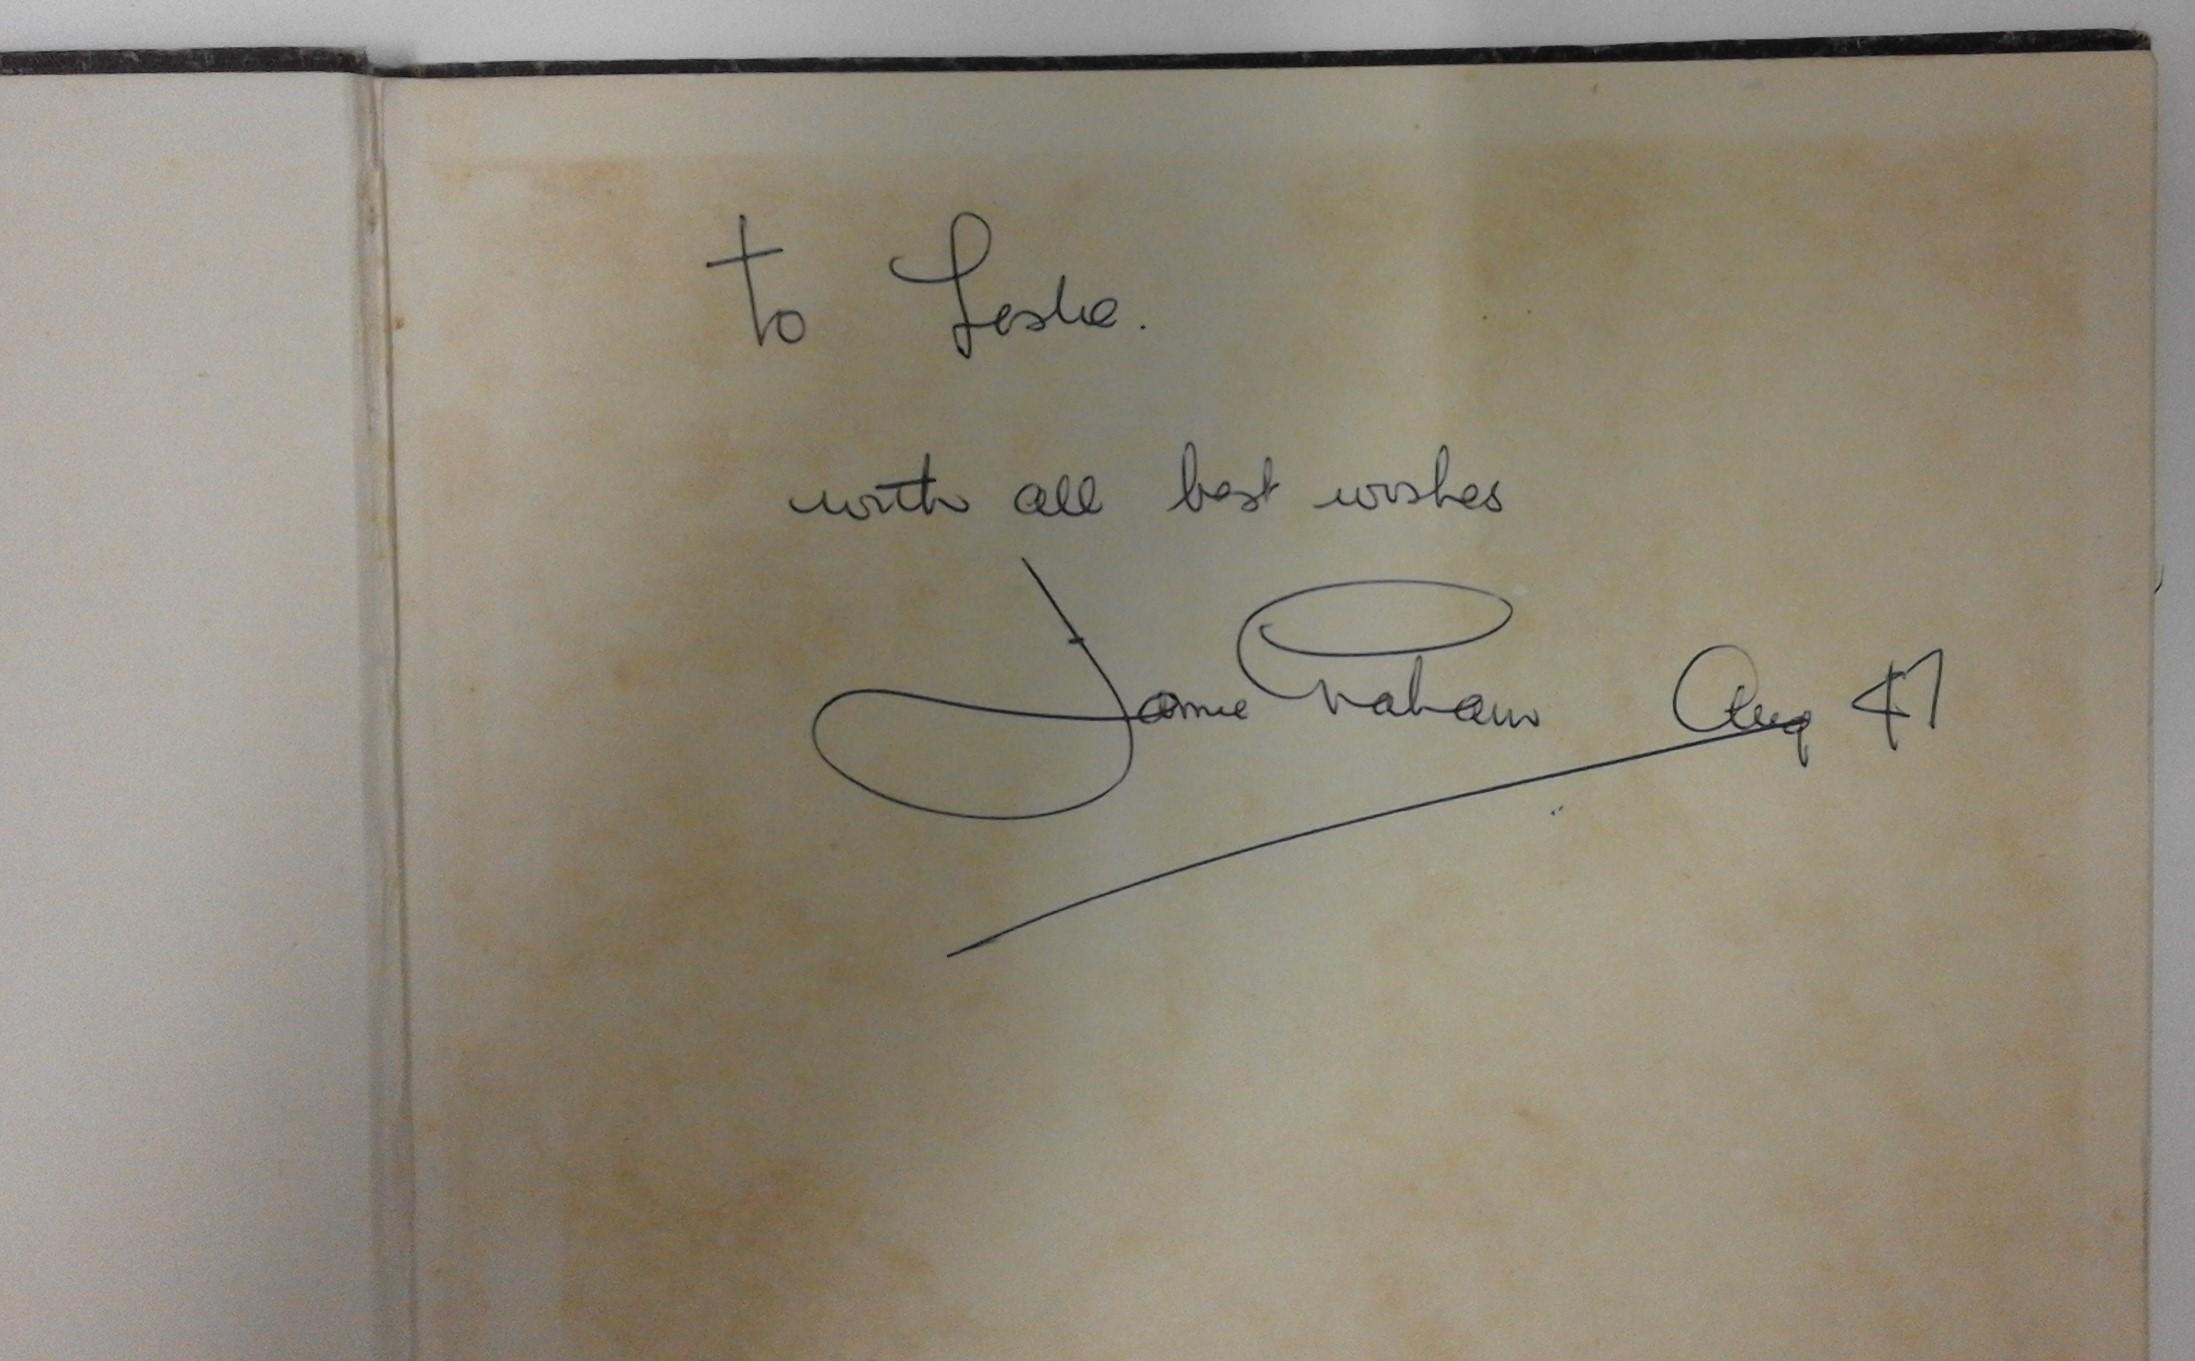 to Leslie.
with all best wishes
Jamie Graham Aug 47